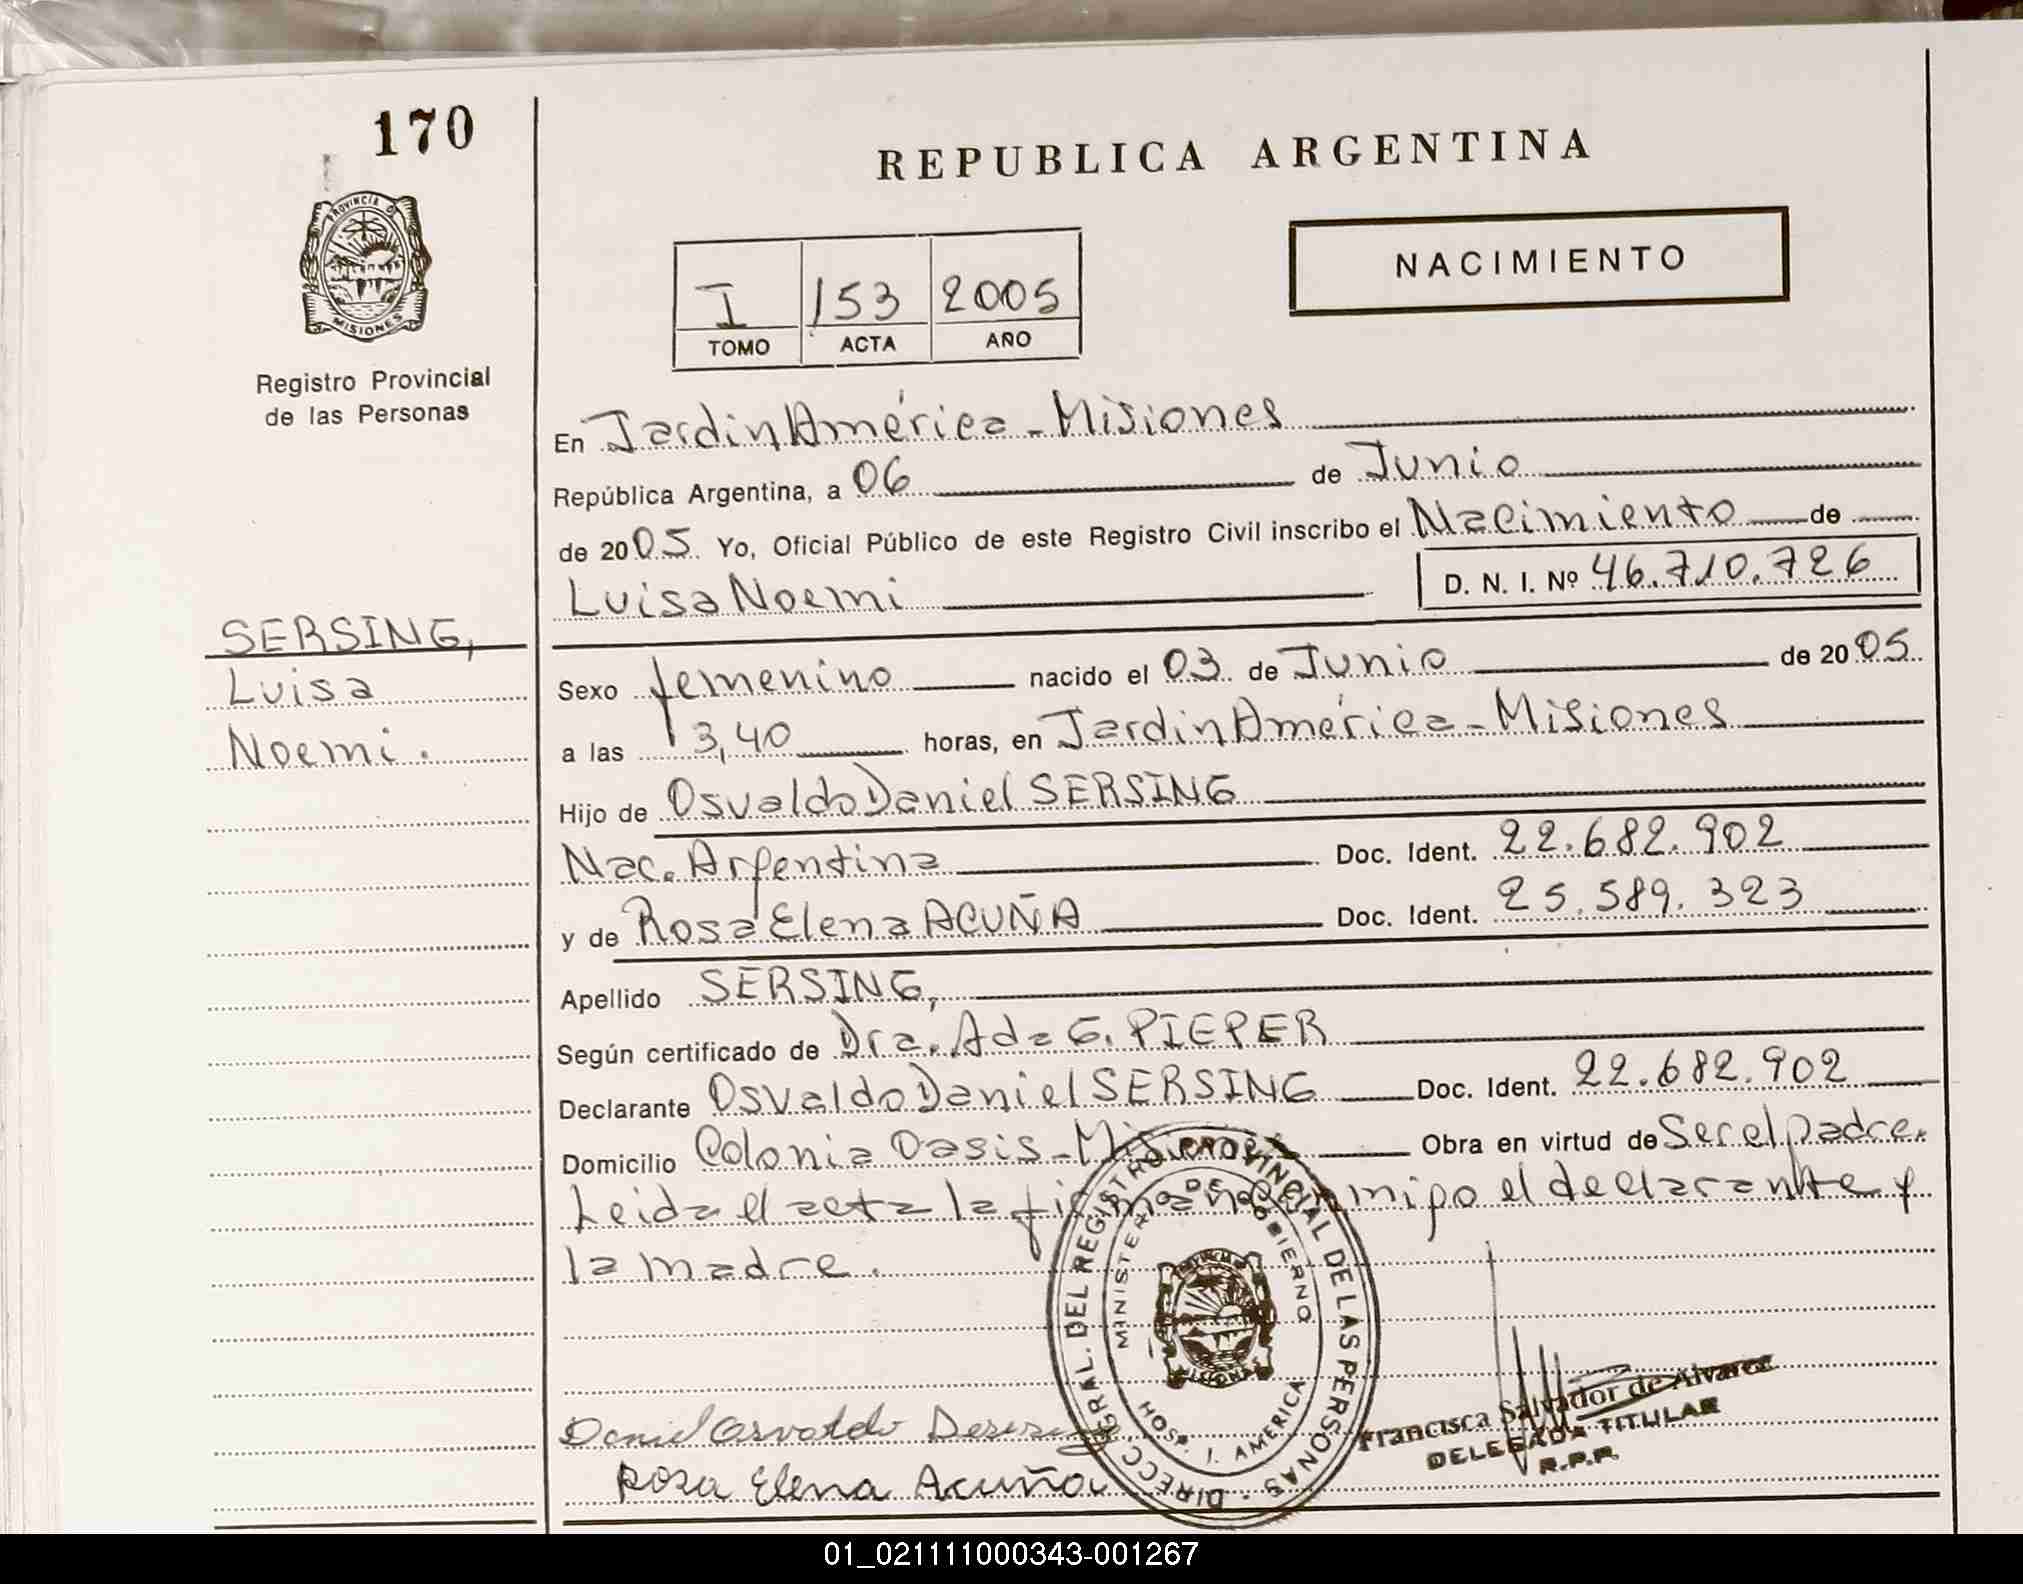 170
REPUBLICA ARGENTINA
PROVINCIA DE
MISIONES
NACIMIENTO
I 153 2005
TOMO ACTA AÑO
Registro Provincial
de las Personas
En Jardin América - Misiones
República Argentina, a 06 de Junio
de 2005. Yo, Oficial Público de este Registro Civil inscribo el Nacimiento de
Luisa Noemi D. N. I. Nº 46.710.726
SERSING,
Luisa
Noemi.
Sexo femenino nacido el 03 de Junio de 2005
a las 3,40 horas, en Jardin América - Misiones
Hijo de Osvaldo Daniel SERSING
Nac. Argentina Doc. Ident. 22.682.902
y de Rosa Elena ACUÑA Doc. Ident. 25.589.323
Apellido SERSING,
Según certificado de Dra. Ada G. PIEPER
Declarante Osvaldo Daniel SERSING Doc. Ident. 22.682.902
Domicilio Colonia Oasis - Misiones Obra en virtud de Ser el padre.
Leida el acta la firman conmigo el declarante y
la madre.
DIRECC. GRAL. DEL REGISTRO PROVINCIAL DE LAS PERSONAS
MINISTERIO DE GOBIERNO
HOSP. J. AMERICA
Francisca Salvador de Alvarez
DELEGADA TITULAR
R.P.P.
Daniel Osvaldo
Rosa Elena Acuña
01_021111000343-001267